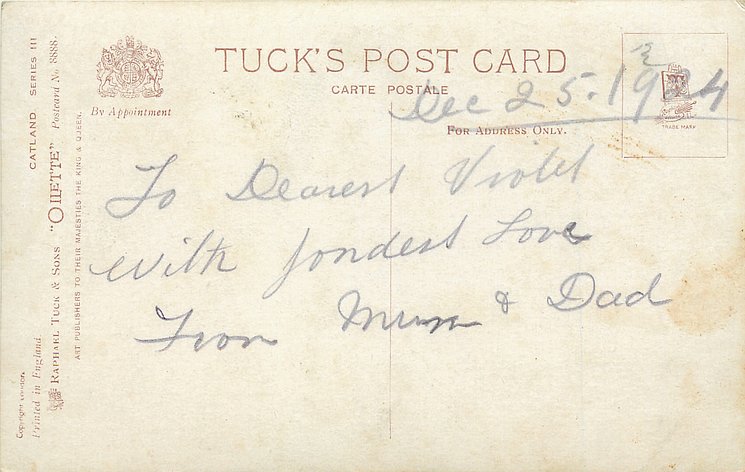 TUCK'S POST CARD
CARTE POSTALE
By Appointment
Dec 25. 1924
FOR ADDRESS ONLY.
TRADE MARK
To Dearest Violet
With fondest Love
From Mum & Dad
CATLAND SERIES III
RAPHAEL TUCK & SONS "OILETTE" Postcard No. 8888.
ART PUBLISHERS TO THEIR MAJESTIES THE KING & QUEEN.
Copyright London.
Printed in England